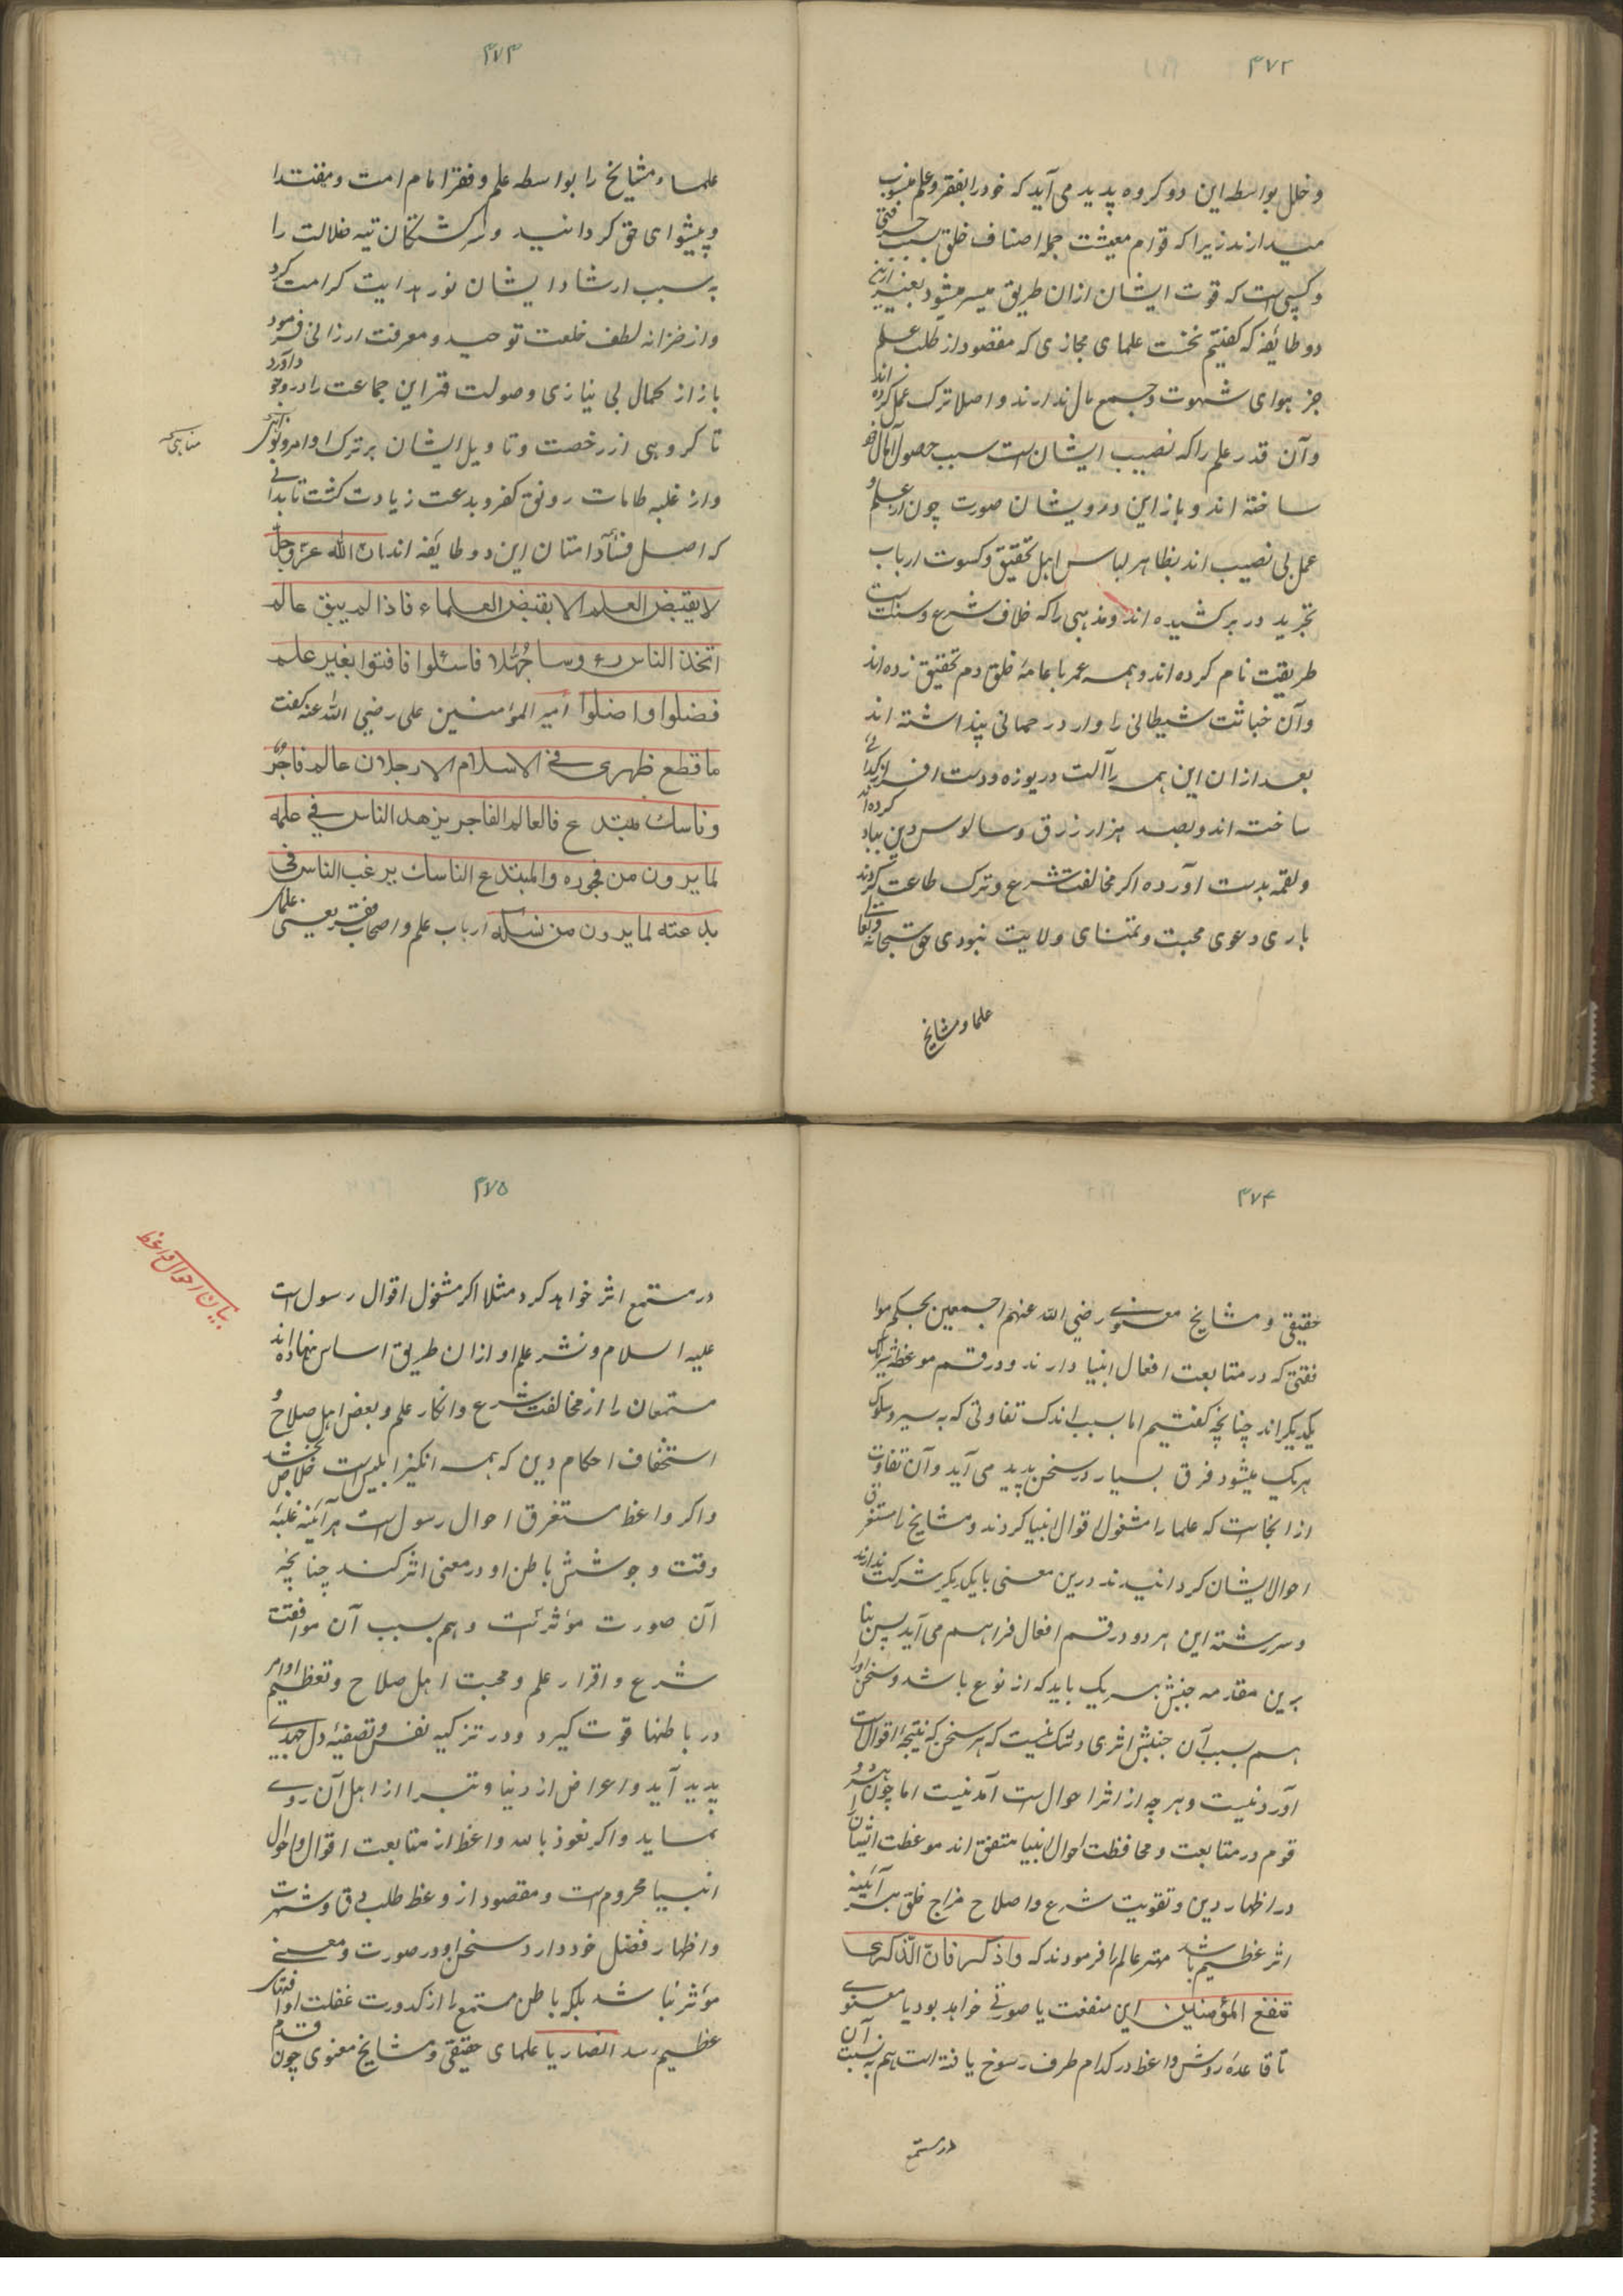 ۴۷۲
و خلل بواسطه این دو کروه پدید می آید که خود را بفقر و علم منسوب
میدارند زیرا که قوام معیشت جمله اصناف خلق بسبب حرفتی
و کسبی است که قوت ایشان ازان طریق میسر میشود بغیر ازین
دو طایفه که کفتیم نخست علمای مجازی که مقصود از طلب علم
جز هوای شهوت و جمع مال ندارند و اصلا ترک عمل کرده اند
و آن قدر علم را که نصیب ایشان است سبب حصول آمال خود
ساخته اند و باز این درویشان صورت چون از علم و
عمل بی نصیب اند بظاهر لباس اهل تحقیق و کسوت ارباب
تجرید در بر کشیده اند و مذهبی را که خلاف شرع و سنت است
طریقت نام کرده اند و همه عمر با عامهٔ خلق دم تحقیق زده اند
و آن خباثت شیطانی را وارد رحمانی پنداشته اند
بعد ازان این همه را آلت دریوزه و دست افزار کدائی
ساخته اند و بصد هزار زرق و سالوس دین بباد کرده اند
و لقمه بدست آورده اکر مخالفت شرع و ترک طاعت کردند
باری دعوی محبت و تمنای ولایت نبودی حق سبحانه و تعالی
علما و مشایخ
۴۷۳
علما و مشایخ را بواسطه علم و فقر امام امت و مقتدا
و پیشوای حق کردانید و سرکشتکان تیه ضلالت را
به سبب ارشاد ایشان نور هدایت کرامت کرد
و از خزانه لطف خلعت توحید و معرفت ارزانی فرمود
باز از کمال بی نیازی و صولت قهر این جماعت را در وجود آورد
تا کروهی از رخصت و تاویل ایشان بر ترک اوامر و نواهی
مناهی که
و از غلبه طامات رونق کفر و بدعت زیادت کشت تا بدانی
که اصل فساد امتان این دو طایفه اند ان الله عز و جل
لا یقبض العلم الا بقبض العلماء فاذا لم یبق عالم
اتخذ الناس رءوسا جُهّلا فاسئلوا فافتوا بغیر علم
فضلوا و اضلوا امیر المؤمنین علی رضی الله عنه کفت
ما قطع ظهری فی الاسلام الا رجلان عالم فاجرٌ
و ناسك مبتدع فالعالم الفاجر یزهد الناس فی علمه
لما یرون من فجوره و المبتدع الناسك یرغب الناس فی
بدعته لما یرون من نسکه ارباب علم و اصحاب فقر یعنی علمای
۴۷۴
حقیقی و مشایخ معنوی رضی الله عنهم اجمعین بحکم موا
فقتی که در متابعت افعال انبیا دارند و در قسم موعظه شریک
یکدیکراند چنانچه کفتیم اما بسبب اندک تفاوتی که به سیر و سلوک
هر یک میشود فرق بسیار در سخن پدید می آید و آن تفاوت
از انجاست که علما را مشغول اقوال انبیا کردند و مشایخ را مستغرق
احوال ایشان کردانیدند درین معنی با یکدیکر شرکت ندارند
و سررشته این هر دو در قسم افعال فراهم می آید پس بنا
برین مقدمه جنبش هر یک باید که از نوع باشد و سخن او را
هم بسبب آن جنبش اثری و شک نیست که هر سخن که نتیجهٔ اقوال است
آوردنیست و هر چه از اثر احوال است آمدنیست اما چون هر دو
قوم در متابعت و محافظت احوال انبیا متفق اند موعظت ایشان را
در اظهار دین و تقویت شرع و اصلاح مزاج خلق هر آینه
اثر عظیم باشد مهتر عالم را فرمودند که واذکر فان الذکری
تنفع المؤمنین این منفعت یا صورتی خواهد بود یا معنوی
تا قاعدهٔ روش واعظ در کدام طرف رسوخ یافته است هم به نسبت آن
در مستمع
۴۷۵
بیان احوال واعظ
در مستمع اثر خواهد کرد مثلا اکر مشغول اقوال رسول است
علیه السلام و نشر علم او ازان طریق اساس نهاده اند
مستمعان را از مخالفت شرع و انکار علم و بغض اهل صلاح و
استخفاف احکام دین که همه انکیز ابلیس است خلاص بخشد
و اکر واعظ مستغرق احوال رسول است هر آئینه غلبهٔ
وقت و جوشش باطن او در معنی اثر کند چنانچه
آن صورت مؤثر است و هم بسبب آن موافقت
شرع و اقرار علم و محبت اهل صلاح و تعظیم اوامر
در باطنها قوت کیرد و در تزکیه نفس و تصفیهٔ دل جهدی
پدید آید و اعراض از دنیا و تبرا از اهل آن روی
نماید و اکر نعوذ بالله واعظ از متابعت اقوال و احوال
انبیا محروم است و مقصود از وعظ طلب و شهرت
و اظهار فضل خود دارد سخن او در صورت و معنی
مؤثر نباشد بلکه باطن مستمع را از کدورت غفلت او
عظیم رسد انصار یا علمای حقیقی و مشایخ معنوی چون قدم